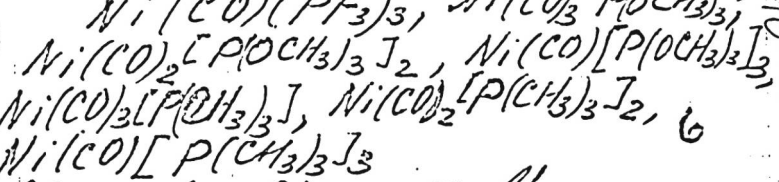 Ni(CO)(PF3)3, Ni(CO)3P(OCH3)3,
Ni(CO)2[P(OCH3)3]2, Ni(CO)[P(OCH3)3]3,
Ni(CO)3[P(CH3)3], Ni(CO)2[P(CH3)3]2, 6
Ni(CO)[P(CH3)3]3